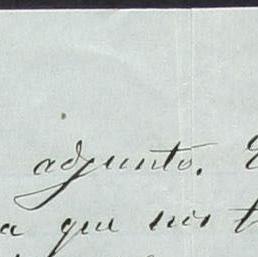 adjunto.
a que nos t